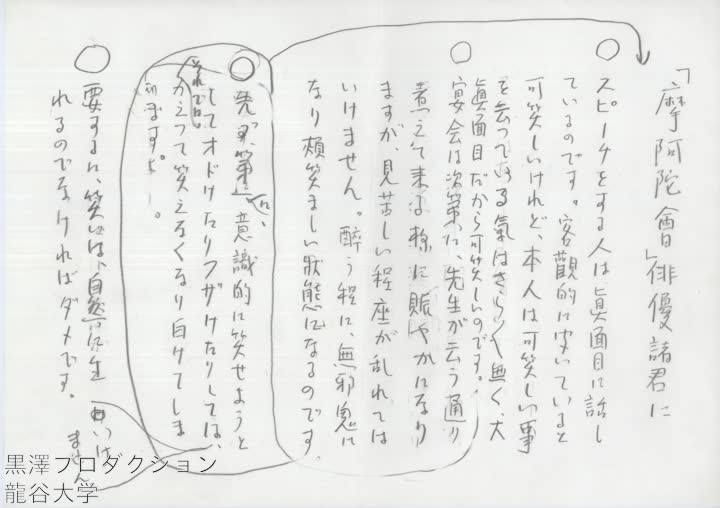 「摩阿陀會」俳優諸君に
○ スピーチをする人は眞面目に話し
ているのです。客觀的に聞いていると
可笑しいけれど、本人は可笑しい事
を云っている氣はさらく無く、大
眞面目だから可笑しいのです。
○ 宴会は次第に、先生が云う通り
煮えて来る様に賑やかになり
ますが、見苦しい程座が乱れては
いけません。醉う程に、無邪鬼に
なり頬笑ましい狀態になるのです。
○ 先ず第一に、意識的に笑せようと
してオドケたりフザケたりしては、
それでは
かえって笑えなくなり白けてしま
います。
○ 要するに、笑いは、自然に生
れるのでなければダメです。
いけ
ません
黒澤プロダクション
龍谷大学